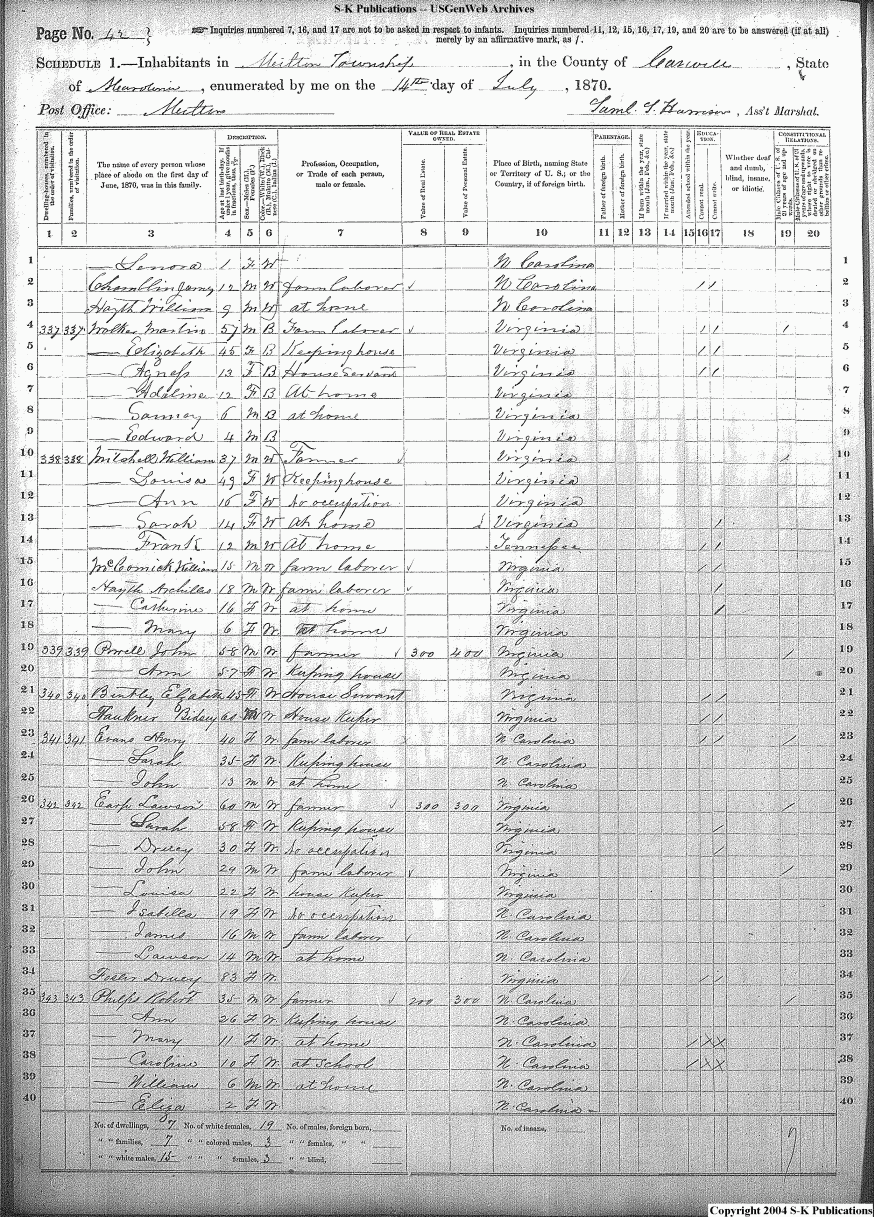 S-K Publications -- USGenWeb Archives
Page No. 42
Inquiries numbered 7, 16, and 17 are not to be asked in respect to infants. Inquiries numbered 11, 12, 15, 16, 17, 19, and 20 are to be answered (if at all)
merely by an affirmative mark, as /.
SCHEDULE 1.—Inhabitants in Milton Township, in the County of Caswell, State
of N Carolina, enumerated by me on the 14th day of July, 1870.
Post Office: Milton Saml. S. Harrison, Ass't Marshal.
DESCRIPTION. VALUE OF REAL ESTATE OWNED. PARENTAGE. EDUCATION. CONSTITUTIONAL RELATIONS.
Dwelling-houses, numbered in the order of visitation.
Families, numbered in the order of visitation.
The name of every person whose place of abode on the first day of June, 1870, was in this family.
Profession, Occupation, or Trade of each person, male or female.
Value of Real Estate.
Value of Personal Estate.
Place of Birth, naming State or Territory of U. S.; or the Country, if of foreign birth.
Father of foreign birth.
Mother of foreign birth.
Attended school within the year.
Cannot read.
Cannot write.
Whether deaf and dumb, blind, insane, or idiotic.
1 2 3 4 5 6 7 8 9 10 11 12 13 14 15 16 17 18 19 20
1 — Lenora 1 F W N Carolina 1
2 Chamblin James 12 M W farm laborer N Carolina / / 2
3 Hayth William 9 M W at home N Carolina 3
4 337 337 Walker Martin 57 M B Farm laborer Virginia / / / 4
5 — Elizabeth 45 F B Keeping house Virginia / / 5
6 — Agness 13 F B House Servant Virginia / / 6
7 — Adaline 12 F B At home Virginia 7
8 — 6 M B at home Virginia 8
9 — Edward 4 M B Virginia 9
10 338 338 Mitchell William 37 M W Farmer Virginia / 10
11 — Louisa 49 F W Keeping house Virginia 11
12 — Ann 16 F W No occupation Virginia 12
13 — Sarah 14 F W At home Virginia / 13
14 — Frank 12 M W At home Tennessee / / 14
15 McComick William 15 M W farm laborer Virginia / / 15
16 Hayth Archilles 18 M W farm laborer Virginia / 16
17 — Catherine 16 F W at home Virginia / 17
18 — Mary 6 F W at home Virginia 18
19 339 339 Powell John 58 M W farmer 300 400 Virginia / 19
20 — Ann 57 F W Keeping house Virginia 20
21 340 340 Bintley Elizabeth 45 F W House Servant Virginia / / 21
22 Faukner Bidsey 60 W House Keeper Virginia / / 22
23 341 341 Evans Henry 40 F W farm laborer N Carolina / / / 23
24 — Sarah 35 F W Keeping house N Carolina 24
25 — John 13 M W at home N Carolina 25
26 342 342 Earp Lawson 60 M W farmer 300 300 Virginia / 26
27 — Sarah 58 F W Keeping house Virginia / 27
28 — Drucy 30 F W No occupation Virginia / 28
29 — John 24 M W farm laborer Virginia / 29
30 — Louisa 22 F W house Keeper Virginia 30
31 — Isabella 19 F W No occupation N. Carolina 31
32 — James 16 M W farm laborer N. Carolina 32
33 — Lawson 14 M W at home N. Carolina 33
34 Foster Drucy 83 F W Virginia / / 34
35 343 343 Phelps Robert 35 M W farmer 200 300 N. Carolina / 35
36 — Ann 26 F W Keeping house N. Carolina 36
37 — Mary 11 F W at home N. Carolina / X X 37
38 — Caroline 10 F W at School N. Carolina / X X 38
39 — William 6 M W at home N. Carolina 39
40 — Eliza 2 F W N. Carolina 40
No. of dwellings, 7 No. of white females, 19 No. of males, foreign born, No. of insane,
" " families, 7 " " colored males, 3 " " females, " "
" " white males, 15 " " " females, 3 " " blind,
Copyright 2004 S-K Publications